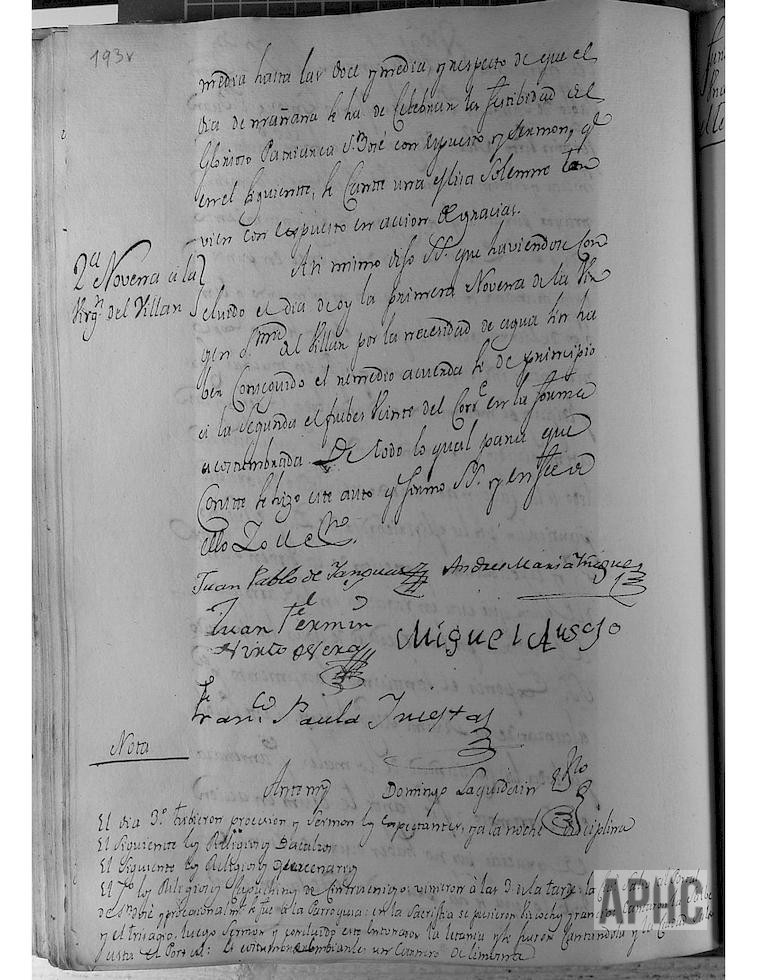 193v
media hasta las doce y media, y respecto de que el
dia de mañana se ha de Celebrar la festibidad del
Glorioso Patriarca S.n José con expuesto y sermon, y q.e
en el siguiente, se Cante una Missa Solemne tan
vien con expuesto en accion de gracias.
2.a Novena a la
Virg.n del Villar
Asi mismo dijo SS. que haviendose Con
cluido el dia de oy la primera Novena de la Vir
gen S.ma del Villar por la necesidad de agua sin ha
ber Conseguido el remedio acuerda se de principio
a la segunda el Jueves Veinte del Corr.te en la forma
acostumbrada. De todo lo qual para que
Conste se hizo este auto y firmo SS. y en fee de
ello Yo el es.no
Juan Pablo de Yanguas Andres Maria Yñiguez
Juan Fermin
Virto de Vera Miguel Ausejo
Fran.co Paula Inestas
Nota
Antemi Domingo Laquidain Es.no
El dia 3.º tubieron procesion y Sermon los expectantes, y a la noche disciplina
El siguiente los Religiosos Descalzos
El siguiente los Religiosos Mercenarios
El 7.º los Religiosos Capuchinos de Cintruenigo: vinieron a las 3 de la tarde: la
de S.n José y procesionalm.te se fue a la Parroquia: en la Sacristia se pusieron Vizcochos y rancio: Cantaron la Salbe
y el trisagio, luego Sermon y concluido esto entonaron la letania y se fueron Cantandola y la
asta el Portal: un Cantaro de limonada
APHC